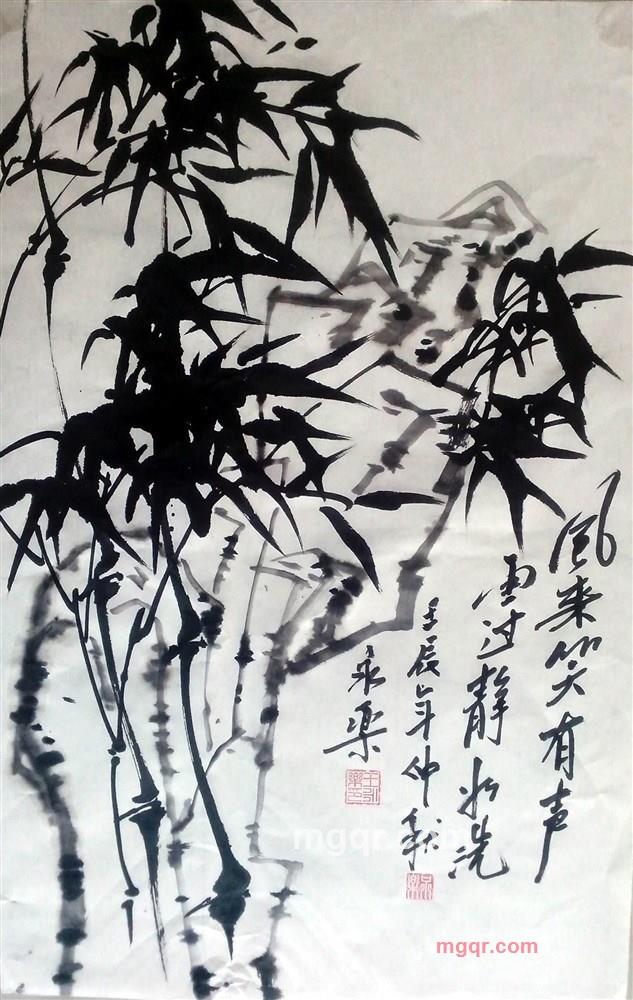 風来笑有声
雨过静如洗
壬辰年仲秋
永樂
mgqr.com
mgqr.com